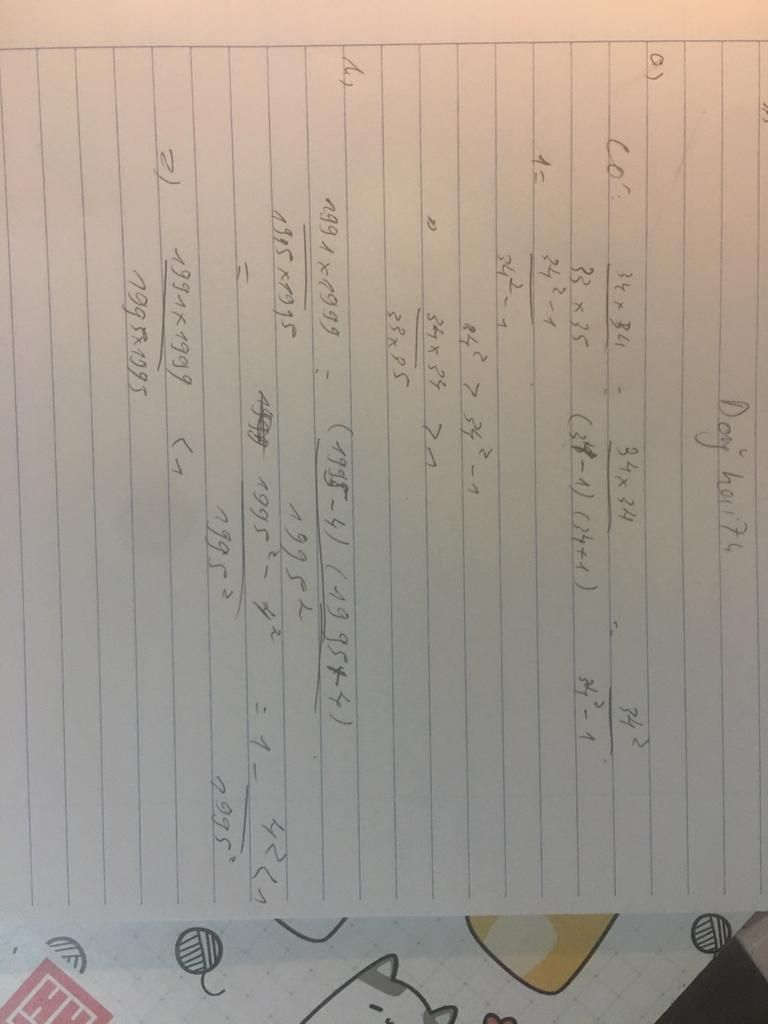 a)
Có: 34×34 / 33×35 = 34×34 / (34-1)(34+1) = 34² / 34²-1
1 = 34²-1 / 34²-1
34² > 34²-1
» 34×34 / 33×35 > 1
b)
1991×1999 / 1995×1995 = (1995-4)(1995+4) / 1995²
= 1995²-4² / 1995² = 1 - 4² / 1995² < 1
=) 1991×1999 / 1995×1995 < 1